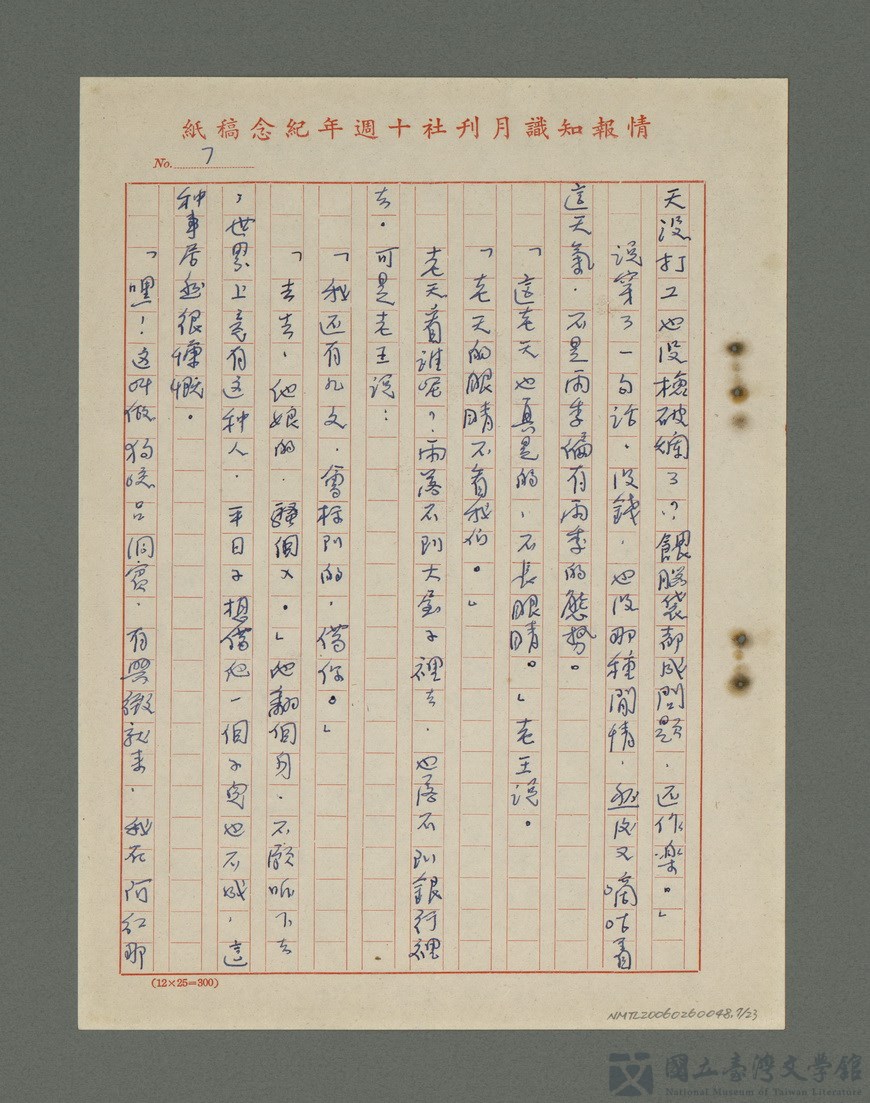 情報知識月刊社十週年紀念稿紙
No. 7
天沒打工也沒撿破爛了？餵腦袋都成問題，还作樂。」
說穿了一句話，沒錢，也沒那種閒情，然後又嘀咕着
這天氣，不是雨季偏有雨季的態勢。
「這老天也真是的，不長眼睛。」老王說。
「老天的眼睛不看我们。」
老天看誰呢？雨落不到大屋子裡去，也落不到銀行裡
去。可是老王說：
「我还有九文，會标到的，借你。」
「去去，他娘的，騷個×。」他翻個身，不願听下去
，世界上竟有这种人，平日子想借他一個子兒也不成，這
种事居然很慷慨。
「嘿！这叫做狗 呂洞賓，有興緻就来，我在阿紅那
(12×25=300)
NMTL20060260048.7/23
國立臺灣文學館
National Museum of Taiwan Literature